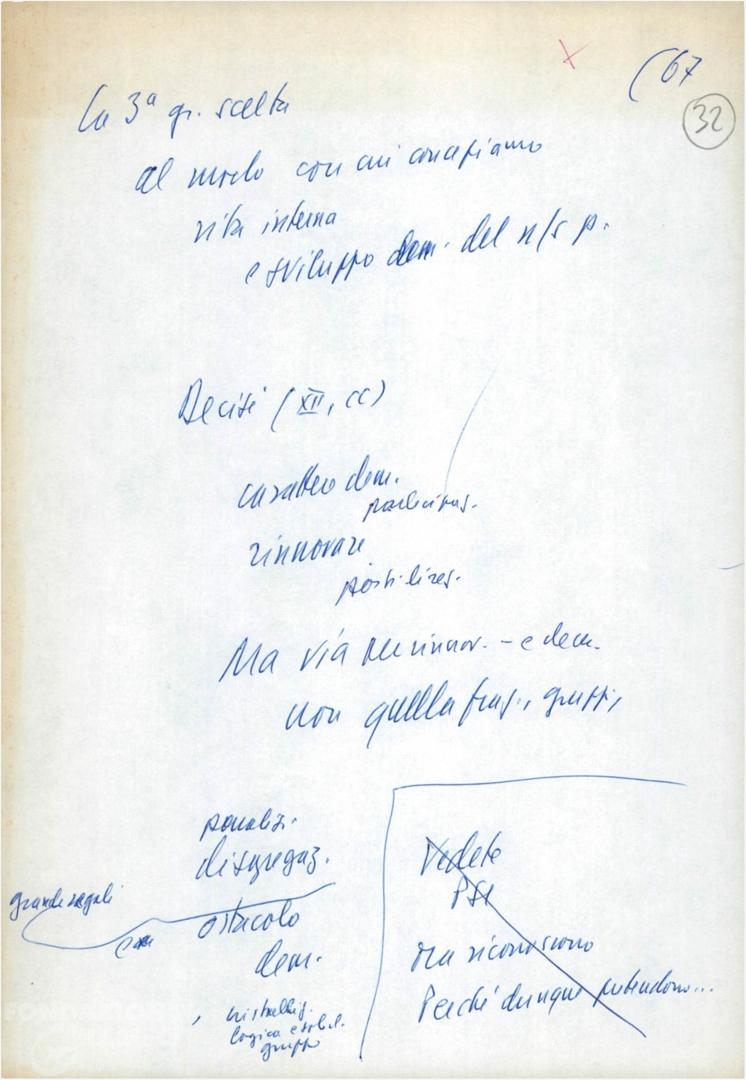 (67
32
La 3ª gr. scelta
al modo con cui concepiamo
vita interna
e sviluppo dem. del n/s p.
Decisi (XII, CC)
carattere dem.
partecipaz.
rinnovare
Ma via per rinnov. - e dem.
non quella fraz., gruppi,
paralisi.
disgregaz.
grande
ostacolo
dem.
cristalliz.
logica e
gruppo
Vedete
PSI
ora riconoscono
Perché dunque pretendono...
FONDAZIONE